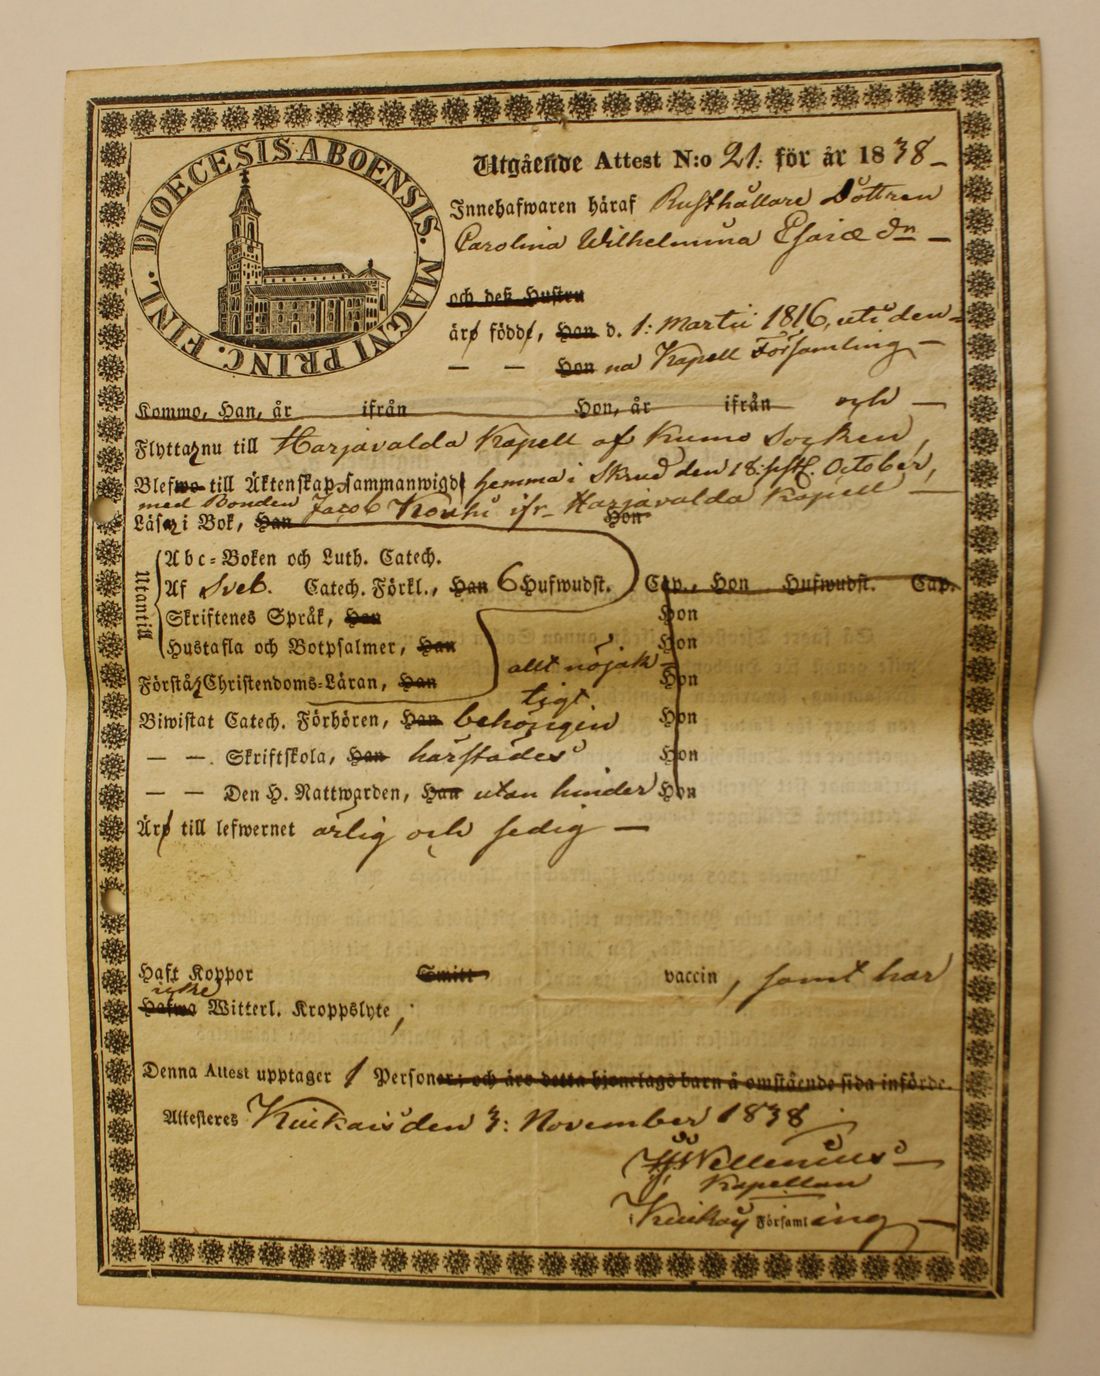 DIOECESIS ABOENSIS. MAGNI PRINC. FINL.
Utgående Attest N:o 21. för år 1838 –
Innehafwaren häraf Rusthållare Dottren
Carolina Wilhelmina Esaiæ dn –
och deß Hustru
äro födde, Han d. 1: Martii 1816, uti den-
— — Hon na Kapell Församling –
Kommo, Han, år ifrån Hon, år ifrån och –
Flytta nu till Harjavalda Kapell af Kumo Socken,
Blefwo till Äktenskap sammanwigde hemma i Skrud den 18: October,
med Bonden Jacob ifr. Harjavalda Kapell –
Läsa i Bok, Han Hon
Utantill
Abc-Boken och Luth. Catech.
Af Sveb. Catech. Förkl., Han 6 Hufwudst. Cap., Hon Hufwudst. Cap.
Skriftenes Språk, Han Hon
Hustafla och Botpsalmer, Han Hon
allt nöjak-
Förstå Christendoms-Läran, Han Hon
ligt
Biwistat Catech. Förhören, Han behörigen Hon
— — Skriftskola, Han härstädes Hon
— — Den H. Nattwarden, Han utan hinder Hon
Äro till lefwernet ärlig och sedig –
Haft Koppor Smitt vaccin, samt har
icke
Hafwa Witterl. Kroppslyte,
Denna Attest upptager 1 Personer; och äro detta hjonelags barn å omstående sida införde.
Attesteres Kiukais den 3: November 1838
Wellenius –
Kapellan
i Kiukais Församling –